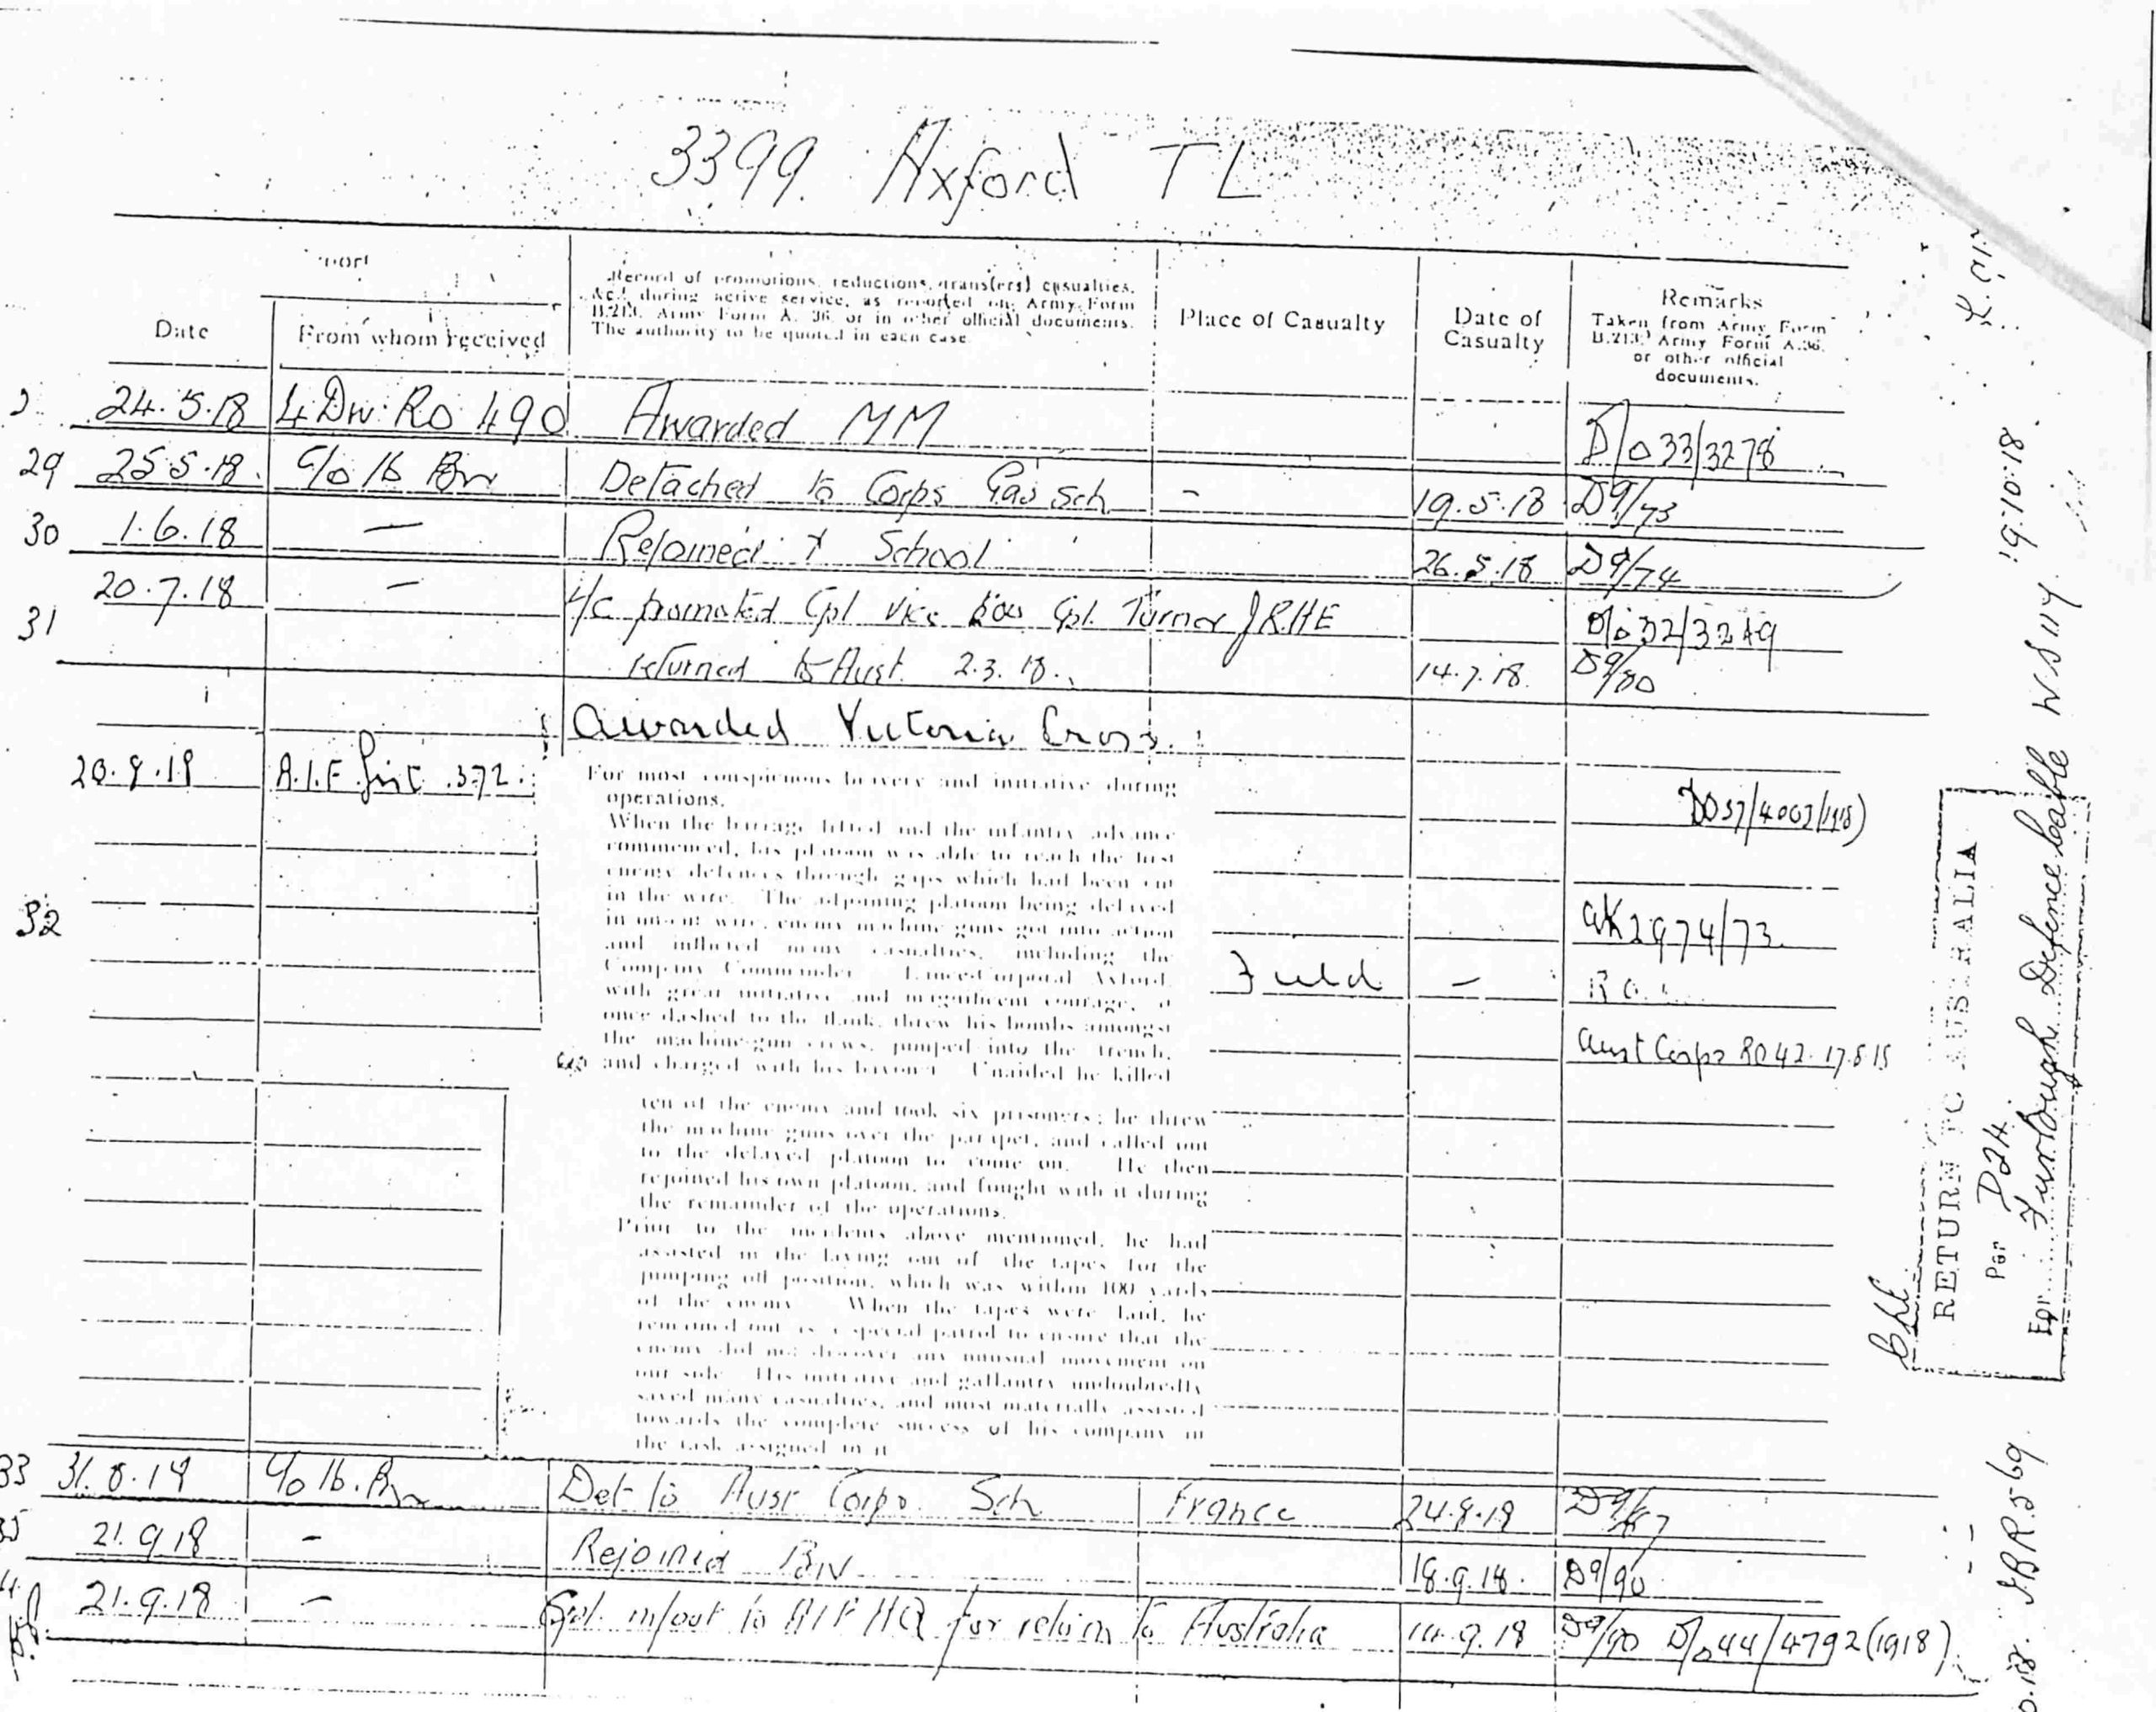 3399. Axford TL
Date
From whom received
Record of promotions, reductions, transfers, casualties,
&c., during active service, as reported on Army Form
B.213, Army Form A. 36, or in other official documents.
The authority to be quoted in each case.
Place of Casualty
Date of
Casualty
Remarks
Taken from Army Form
B.213, Army Form A.36,
or other official
documents.
24.5.18 4 Div. Ro 490 Awarded MM D/o 33/3278
29 25.5.18. C/o 16 Bn Detached to Corps Gas Sch - 19.5.18 D9/73
30 1.6.18 — Rejoined School 26.5.18 D9/74
31 20.7.18 — L/c promoted Cpl vice Cpl. Turner J.R.HE D/o 32/3249
returned to Aust. 2.3.18. 14.7.18. D9/80
Awarded Victoria Cross.
32 20.9.18 A.I.F. List 372. DO37/4063/1918)
For most conspicuous bravery and initiative during
operations.
When the barrage lifted and the infantry advance
commenced, his platoon was able to reach the first
enemy defences through gaps which had been cut
in the wire. The adjoining platoon being delayed
in uncut wire, enemy machine guns got into action
and inflicted many casualties, including the
Company Commander. Lance-Corporal Axford,
with great initiative and magnificent courage, at
once dashed to the flank, threw his bombs amongst
the machine-gun crews, jumped into the trench,
and charged with his bayonet. Unaided he killed
ten of the enemy and took six prisoners; he threw
the machine guns over the parapet, and called out
to the delayed platoon to come on. He then
rejoined his own platoon, and fought with it during
the remainder of the operations.
Prior to the incidents above mentioned, he had
assisted in the laying out of the tapes for the
jumping off position, which was within 100 yards
of the enemy. When the tapes were laid, he
remained out as a special patrol to ensure that the
enemy did not discover any unusual movement on
our side. His initiative and gallantry undoubtedly
saved many casualties, and most materially assisted
towards the complete success of his company in
the task assigned to it.
Field —
AK2974/73
Aust Corps RO 42. 17.8.18
33 31.8.18 C/o 16. Bn Det to Aust Corps. Sch France 24.8.18 D9/87
35 21.9.18 - Rejoined BN 18.9.18. D9/90
21.9.18 - Cpl. m/out to AIF HQ for return to Australia 14.9.18 D9/90 D/o 44/4792(1918)
RETURN TO AUSTRALIA
Per D24.
For Furlough. Defence Cable WS 114. 19.10.18.